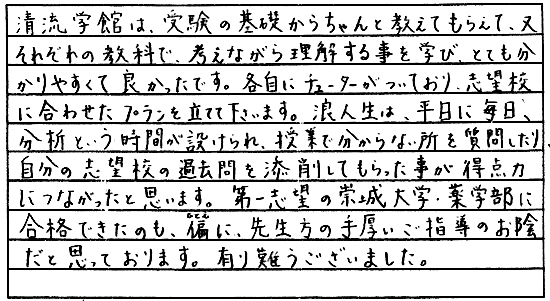 清流学館は、受験の基礎からちゃんと教えてもらえて、又
それぞれの教科で、考えながら理解する事を学び、とても分
かりやすくて良かったです。各自にチューターがついており、志望校
に合わせたプランを立てて下さいます。浪人生は、平日に毎日、
分析という時間が設けられ、授業で分からない所を質問したり、
自分の志望校の過去問を添削してもらった事が得点力
につながったと思います。第一志望の崇城大学・薬学部に
合格できたのも、偏に、先生方の手厚いご指導のお陰
だと思っております。有り難うございました。